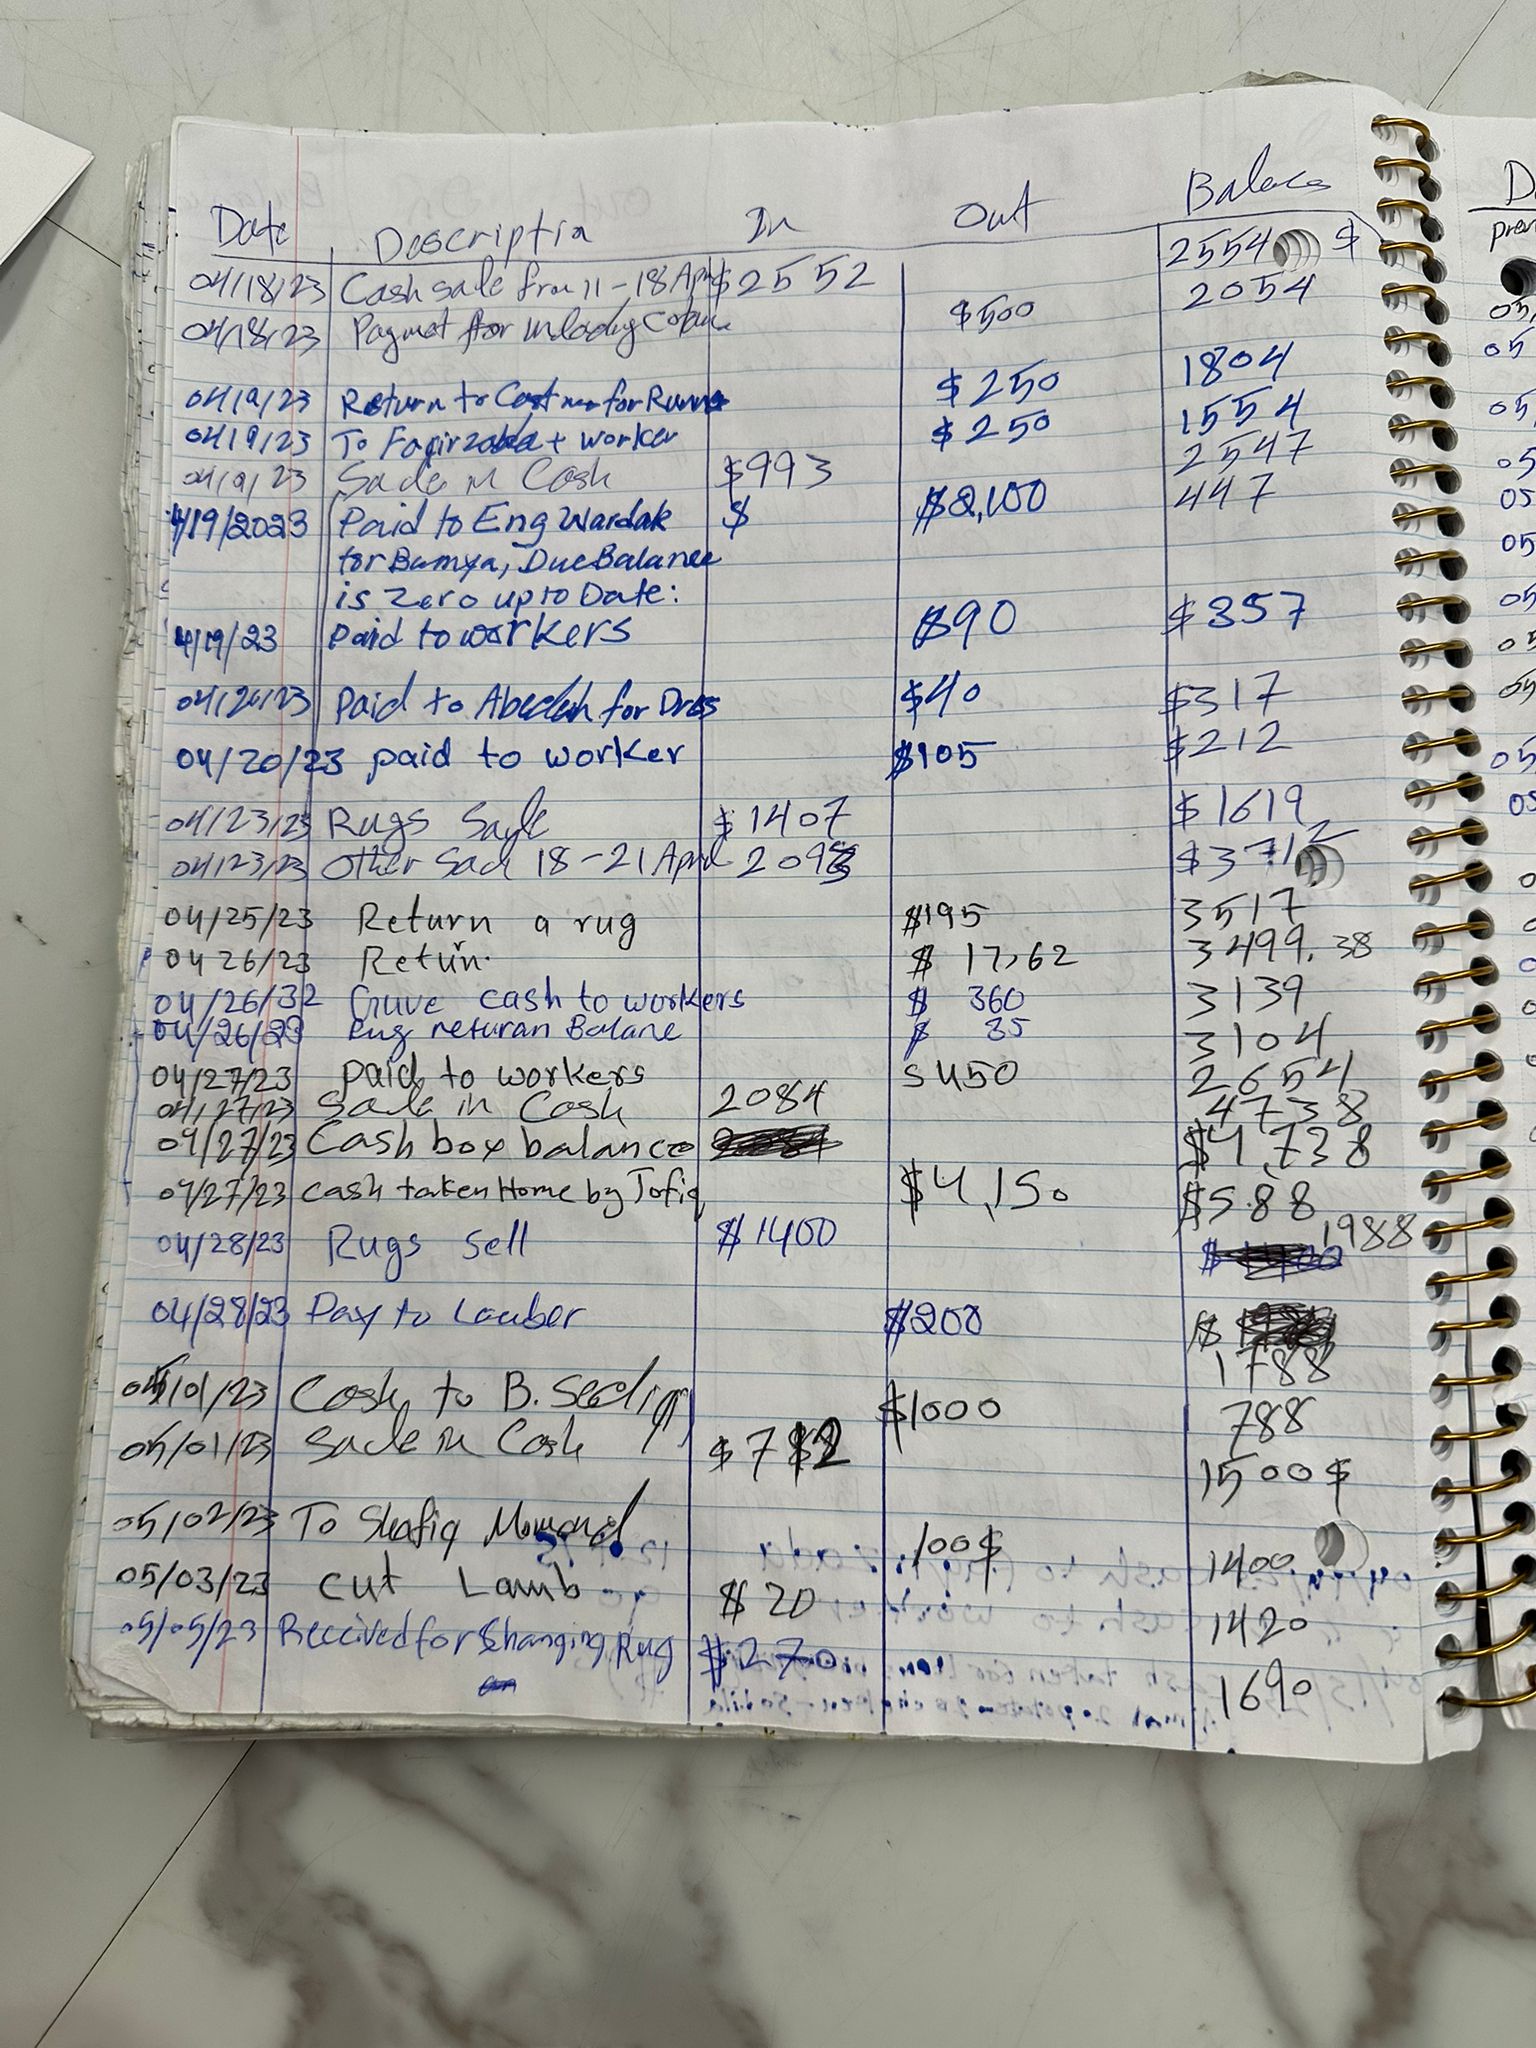 Date Description In Out Balance
04/18/23 Cash sale from 11-18 April $2552 2554 $
04/18/23 Paymet for $500 2054
04/19/23 Return to for $250 1804
04/19/23 To + worker $250 1554
04/19/23 Sade in Cash $993 2547
4/19/2023 Paid to Eng Wardak $ $2,100 447
for Bamya, Due Balance
is Zero up to Date:
4/19/23 paid to workers $90 $357
04/20/23 Paid to for $40 $317
04/20/23 paid to worker $105 $212
04/23/23 Rugs Sale $1407 $1619
04/23/23 Other Sad 18-21 April 2093 $3712
04/25/23 Return a rug $195 3517
04 26/23 Return. $ 17,62 3499.38
04/26/32 Guve cash to workers $ 360 3139
04/26/23 Rug returan Balane $ 35 3104
04/27/23 paid to workers $450 2654
04/27/23 Sade in Cash 2084 4738
04/27/23 Cash box balance $4,738
04/27/23 cash taken Home by Tofiq $4,150 $588
04/28/23 Rugs Sell $1400 1988
04/28/23 Pay to Lauber $200 $
1788
05/01/23 Cash to B. $1000 788
05/01/23 Sade in Cash $712 1500$
05/02/23 To Shafiq Momand 100$ 1400
05/03/23 cut Lamb $20 1420
05/05/23 Received for Changing Rug $270 1690
05
05
05
05
05
05
05